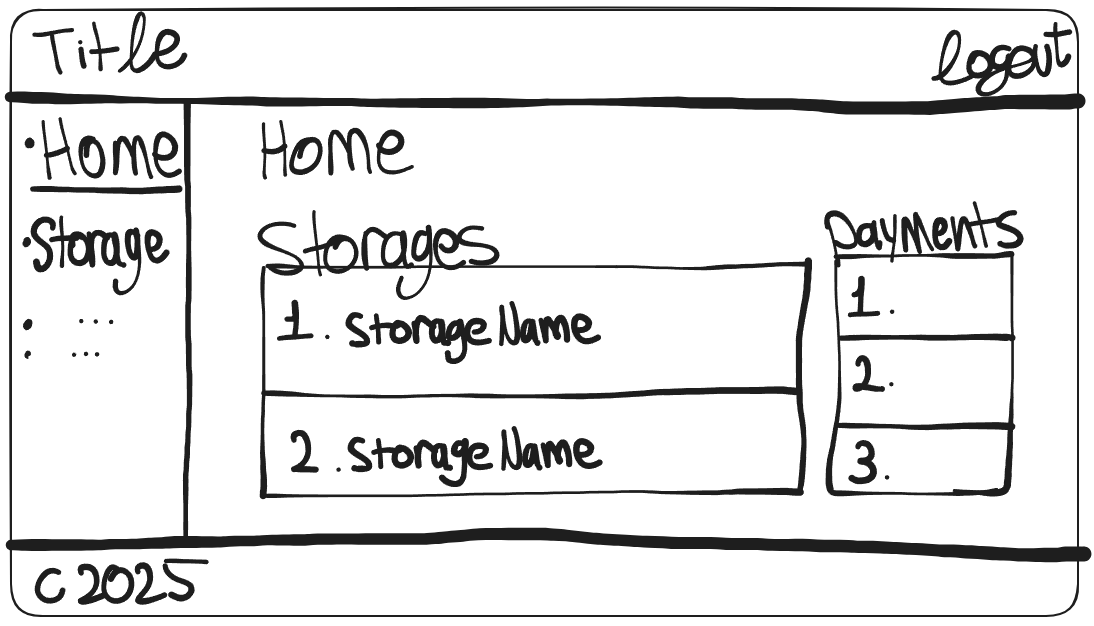 Title
logout
•Home
•Storage
• ...
• ...
Home
Storages
1. Storage Name
2. Storage Name
Payments
1.
2.
3.
C 2025